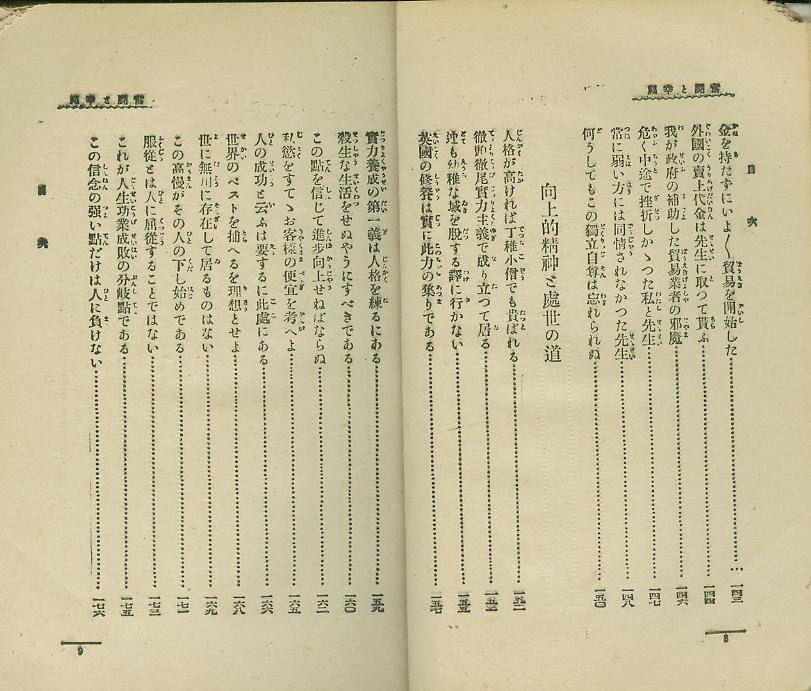 奮鬪と幸運
目次
金を持たずにいよ〱貿易を開始した……一四三
外國の賣上代金は先生に取つて貰ふ……一四四
我が政府の補助した貿易業者の邪魔……一四六
危く中途で挫折しかゝつた私と先生……一四七
常に弱い方には同情されなかつた先生……一四八
何うしてもこの獨立自尊は忘れられぬ……一五〇
向上的精神と處世の道
人格が高ければ丁稚小僧でも貴ばれる……一五二
徹頭徹尾實力主義で成り立つて居る……一五三
迚も幼稚な域を脱する譯に行かない……一五五
英國の修養は實に此力の集りである……一五七
8
奮鬪と幸運
目次
實力養成の第一義は人格を練るにある……一五九
殺生な生活をせぬやうにすべきである……一六〇
この點を信じて進步向上せねばならぬ……一六二
私慾をすてゝお客樣の便宜を考へよ……一六五
人の成功と云ふは要するに此處にある……一六六
世界のベストを捕へるを理想とせよ……一六八
世に無用に存在して居るものはない……一六九
この高慢がその人の下し始めである……一七一
服從とは人に屈從することではない……一七三
これが人生功業成敗の分岐點である……一七五
この信念の强い點だけは人に負けない……一七六
9